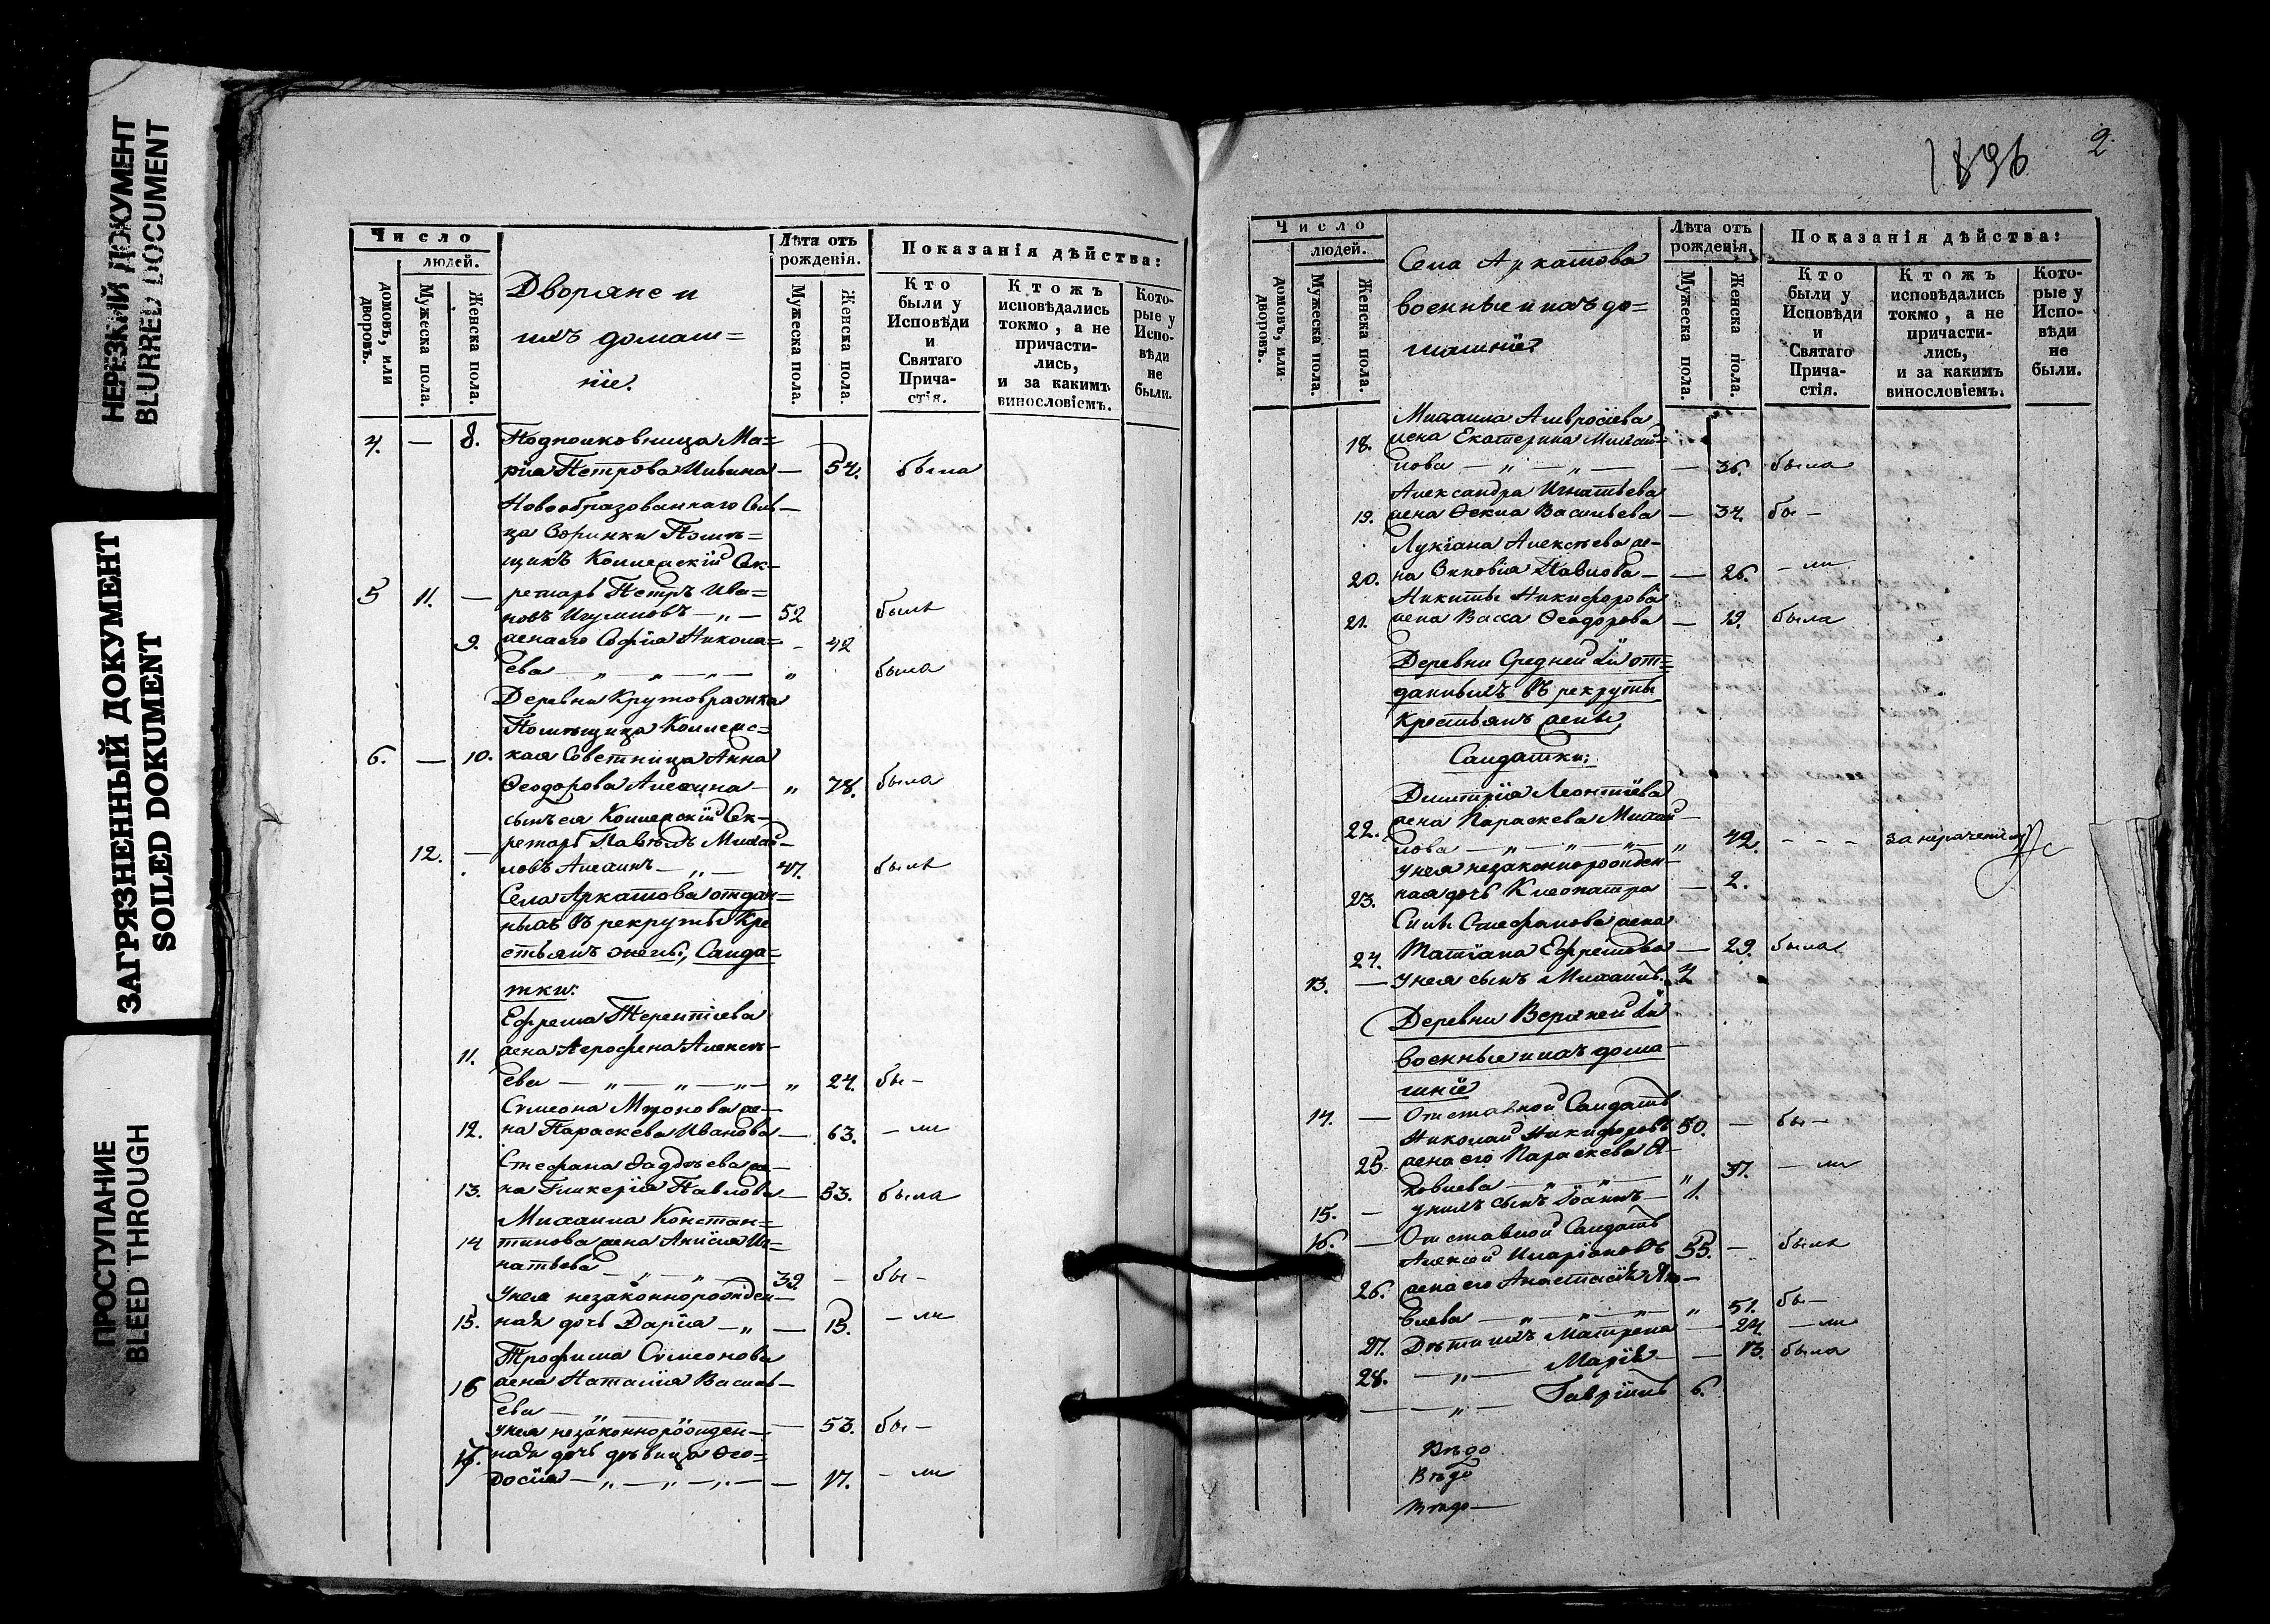 НЕРЕЗКИЙ ДОКУМЕНТ
BLURRED DOCUMENT
ЗАГРЯЗНЕННЫЙ ДОКУМЕНТ
SOILED DOKUMENT
ПРОСТУПАНИЕ
BLEED THROUGH
Число
людей.
домовъ, или дворовъ.
Мужеска пола.
Женска пола.
Дворяне и
ихъ домаш=
ніе.
Лѣта отъ рожденія.
Мужеска пола.
Женска пола.
Показанія дѣйства:
Кто были у Исповѣди и Святаго Прича- стія.
Ктожъ исповѣдались токмо, а не причасти- лись, и за какимъ винословіемъ.
Кото- рые у Испо- вѣди не были.
4. — 8. Подполковница Ма=
рія Петрова — 54. была
Новообразованнаго Сель-
ца Помѣ=
щикъ Коллежскій Сек-
5 11. — ретарь Петръ Ива=
новъ — „ — 52 былъ
9. жена его Софія Никола= - 42
ева — „ — „ — „ — „ была
Деревни Крутовражка
Помѣщица Коллежс=
6. — 10. кая Советница Анна
Ѳеодорова — „ 78. была
сынъ ея Коллежскій Сек-
12. — ретарь Павелъ Михай-
ловъ — „ — 47. былъ
Села Аркатова отдан=
ныхъ въ рекруты Кре
стьянъ жены, Салда=
тки:
Ефрема Терентіева
11. жена Агрофена Алексѣ-
ева — „ — „ — „ — „ 24. бы-
Симеона Миронова же-
12. на Параскева Иванова — 63. - ли
Стефана Фаддѣева же-
13. на Гликерія Павлова — 53. была
Михаила Констан=
14 тинова жена Иг=
натьева — „ — „ — 39. - бы-
у нея незаконнорожден-
15. ная дочь Дарія — „ — 15. - ли
Трофима Симеонова
16 жена Наталія Василь-
ева — 53. бы-
у нея незаконнорожден-
17. ная дочь дѣвица Ѳео=
досія — „ — „ — „ — 17. - ли
1836
2
Число
людей.
домовъ, или дворовъ.
Мужеска пола.
Женска пола.
Села Аркатова
военные и ихъ до=
машніе
Лѣта отъ рожденія.
Мужеска пола.
Женска пола.
Показанія дѣйства:
Кто были у Исповѣди и Святаго Прича- стія.
Ктожъ исповѣдались токмо, а не причасти- лись, и за какимъ винословіемъ.
Кото- рые у Испо- вѣди не были.
Михаила Амвросіева
18. жена Екатерина Михай=
лова — „ — „ — — 36. была
Александра Игнатьева
19. жена Ѳекла Васильева — 34. бы-
Лукіана Алексѣева же-
20. на Павлова — — 26. - ли
Никиты Никифорова
21. жена Васса Ѳеодорова — 19. была
Деревни Средней от=
данныхъ въ рекруты
крестьянъ жены,
Салдатки:
Димитрія Леонтіева
22. жена Параскева Михай-
лова — „ — „ — „ — „ 42. - - - за нераченіемъ
у нея незаконнорожден-
23. ная дочь Клеопатра — 2.
Силы Стефанова жена
24. Татіана Ефремова — 29. была
13. — у нея сынъ Михаилъ.
Деревни Верхней
военные и ихъ дома-
шніе
14. — Отставной Салдатъ
Николай Никифоровъ 50. — бы-
25. жена его Параскева Я-
ковлева — „ — „ — „ 37. - ли
15. — у нихъ сынъ Іоаннъ — 1.
16. — Отставной Салдатъ
Алексей Иларіоновъ 55. — былъ
26. жена его Анастасія Як-
влева — „ — „ — „ — „ 51. бы-
27. Дѣти ихъ Матрена — 24. - ли
28. — „ — Марія — — 13. была
— — „ — Гавріилъ 6.